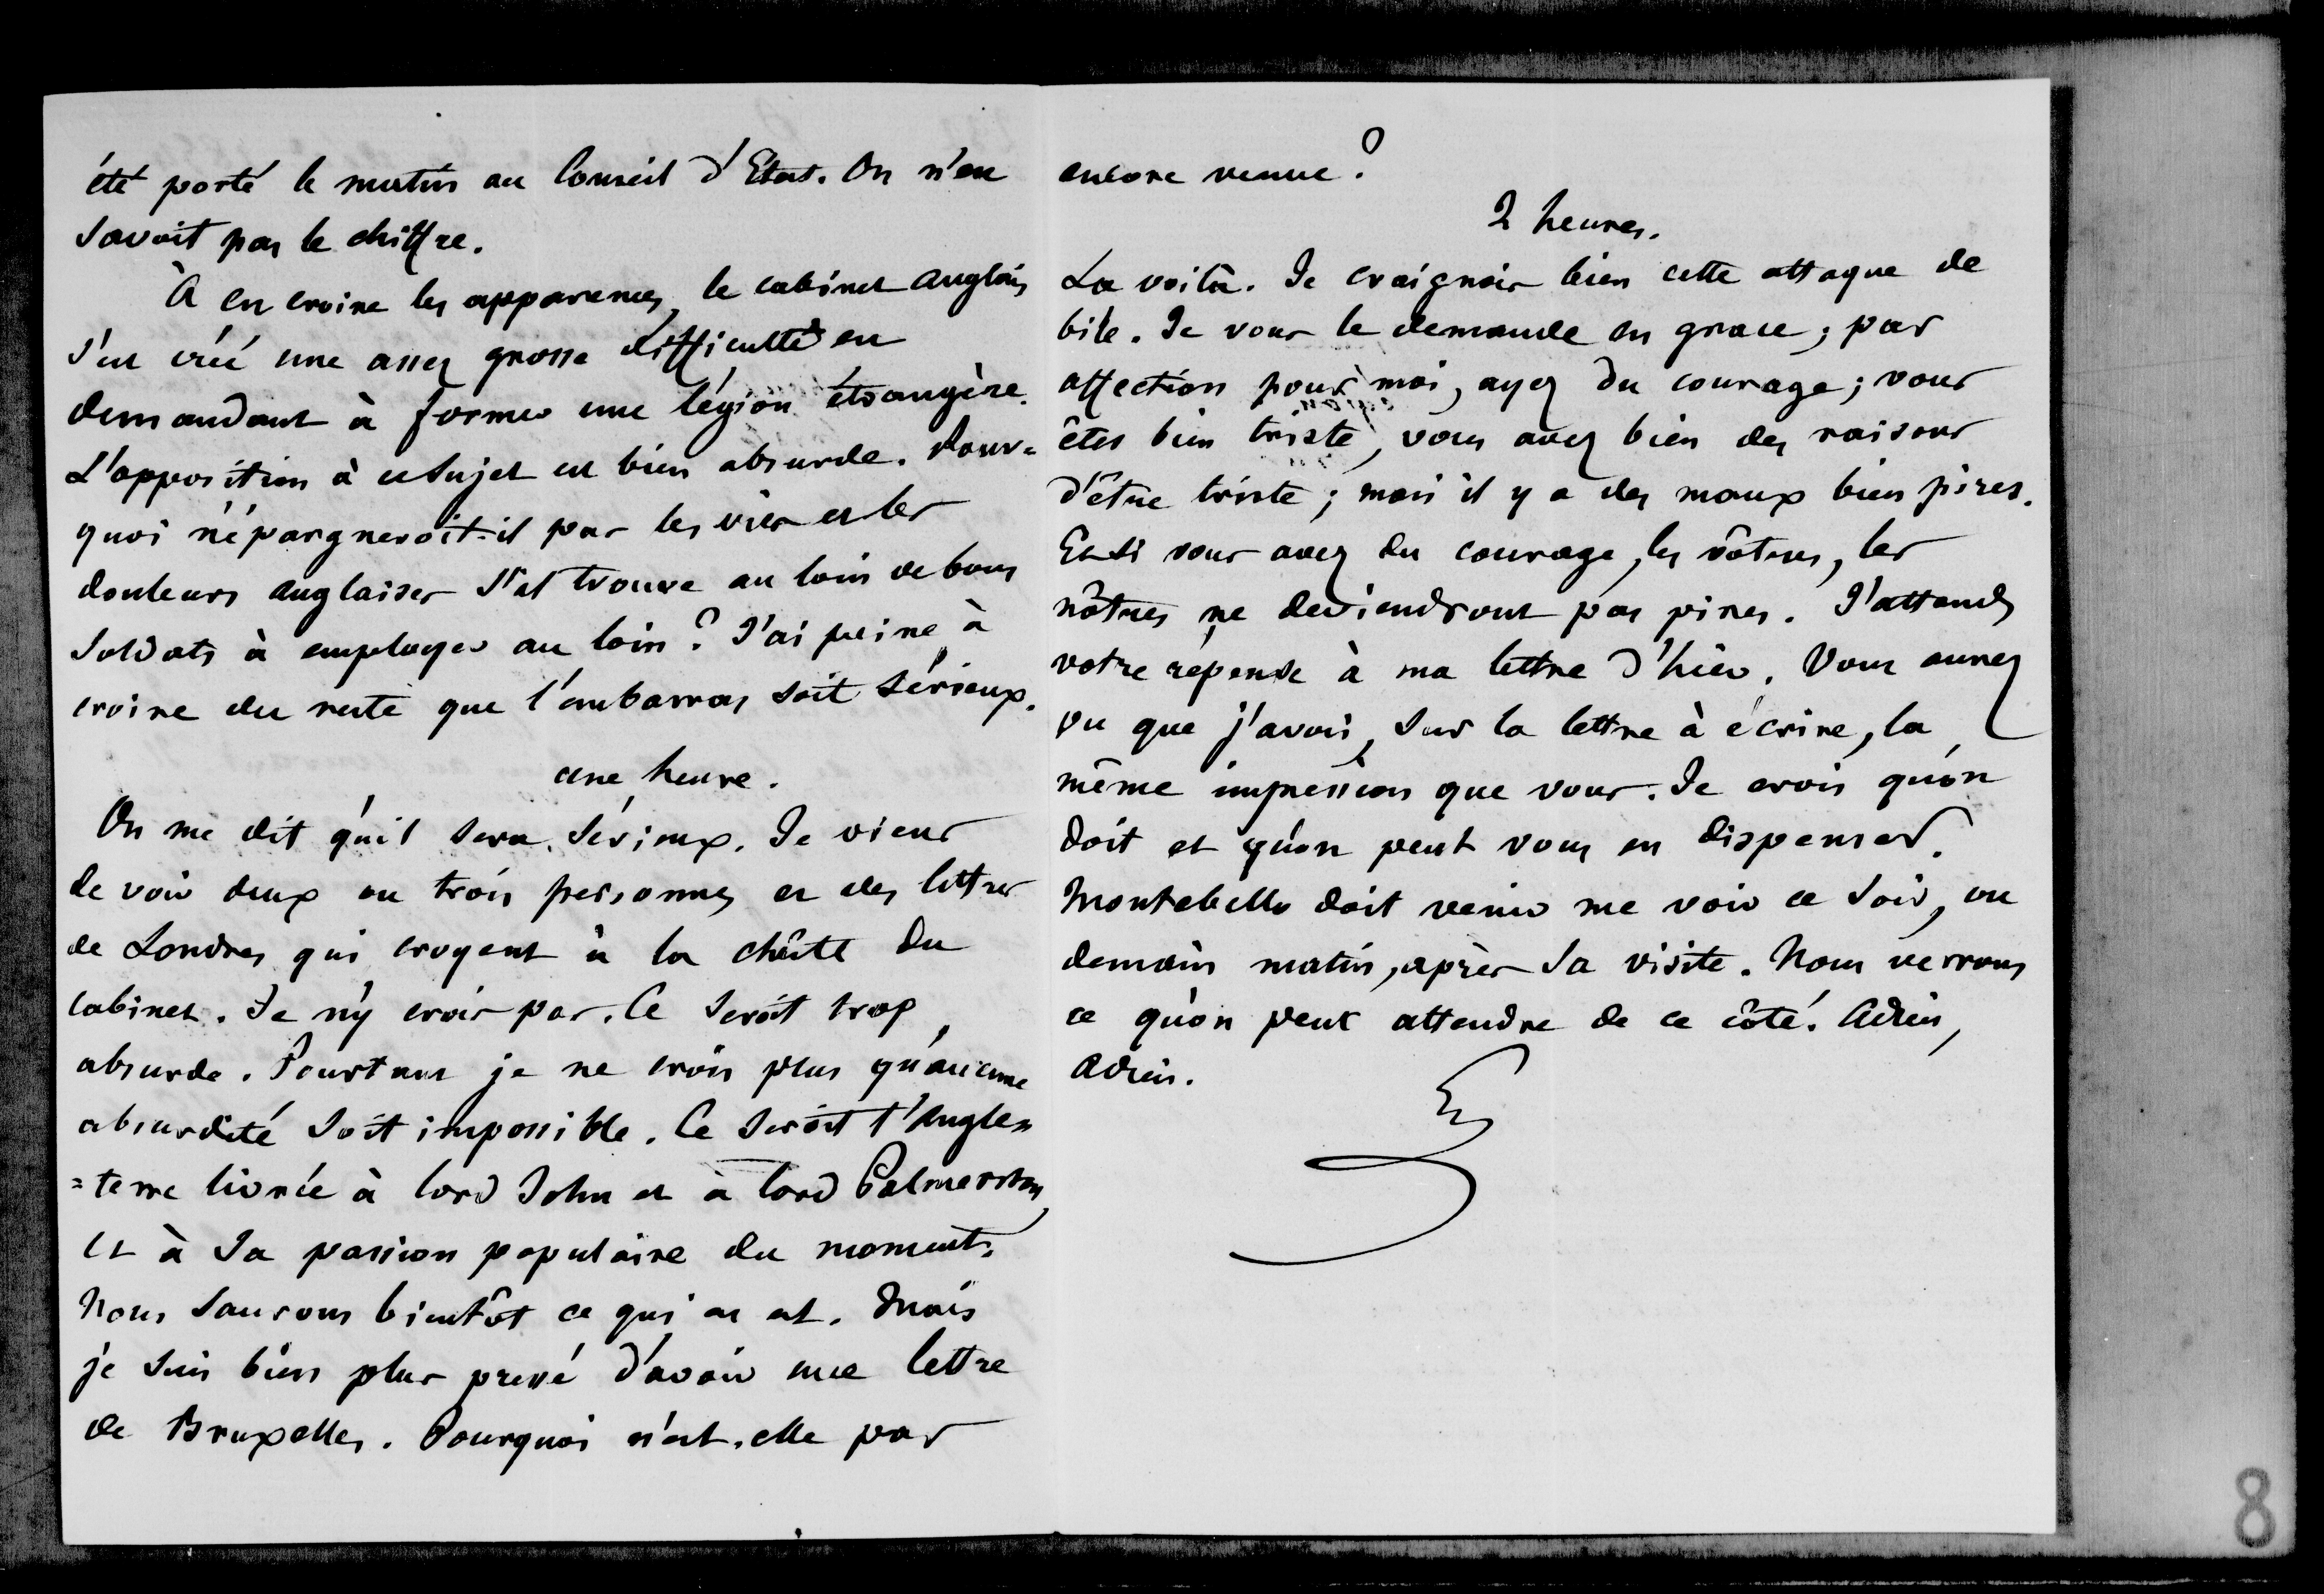 été porté le matin au Conseil d'Etat. On n'en
savoit pas le chiffre.
À en croire les apparences, le cabinet anglais
s'est créé une assez grosse difficulté en
demandant à former une légion étrangère.
L'opposition à ce sujet est bien absurde. Pour=
quoi n'épargneroit-il pas les vies et les
douleurs anglaises s'il trouve au loin de bons
soldats à employer au loin ? J'ai peine à
croire du reste que l'embarras soit sérieux.
une heure.
On me dit qu'il sera sérieux. Je viens
de voir deux ou trois personnes et des lettres
de Londres qui croyent à la chûte du
cabinet. Je n'y crois pas. Ce seroit trop
absurde. Pourtant je ne crois plus qu'aucune
absurdité soit impossible. Ce seroit l'Angle=
=terre livrée à lord John et à lord Palmerston,
et à sa passion populaire du moment.
Nous saurons bientôt ce qui en est. Mais
je suis bien plus pressé d'avoir une lettre
de Bruxelles. Pourquoi n'est-elle pas
encore venue ?
2 heures.
La voilà. Je craignois bien cette attaque de
bile. Je vous le demande en grace ; par
affection pour moi, ayez du courage ; vous
êtes bien triste, vous avez bien des raisons
d'être triste ; mais il y a des maux bien pires.
Et si vous avez du courage, les vôtres, les
nôtres ne deviendront pas pires. J'attends
votre réponse à ma lettre d'hier. Vous aurez
vu que j'avois, sur la lettre à écrire, la
même impression que vous. Je crois qu'on
doit et qu'on peut vous en dispenser.
Montebello doit venir me voir ce soir, ou
demain matin, après sa visite. Nous verrons
ce qu'on peut attendre de ce côté. Adieu,
Adieu.
8